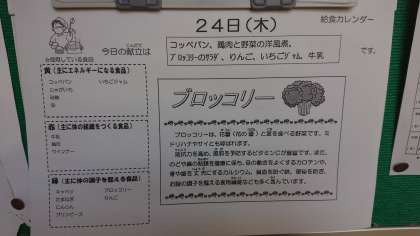 24日(木)
給食カレンダー
今日の献立は
コッペパン、鶏肉と野菜の洋風煮、
ブロッコリーのサラダ、りんご、いちごジャム、牛乳
です。
※使用している食品
黄〔主にエネルギーになる食品〕
コッペパン いちごジャム
じゃがいも
砂糖
油
赤〔主に体の組織をつくる食品〕
牛乳
鶏肉
ウインナー
緑〔主に体の調子を整える食品〕
キャベツ ブロッコリー
たまねぎ りんご
にんじん
グリンピース
ブロッコリー
ブロッコリーは、花蕾(花の蕾)と茎を食べる野菜です。ミ
ドリハナヤサイとも呼ばれます。
抵抗力を高め、風邪を予防するビタミンCが豊富です。また、
のどや鼻の粘膜を健康に保ち、目の働きをよくするカロテンや、
骨や歯を丈夫にするカルシウム、貧血を防ぐ鉄、便秘を防ぎ、
お腹の調子を整える食物繊維なども多く含んでいます。